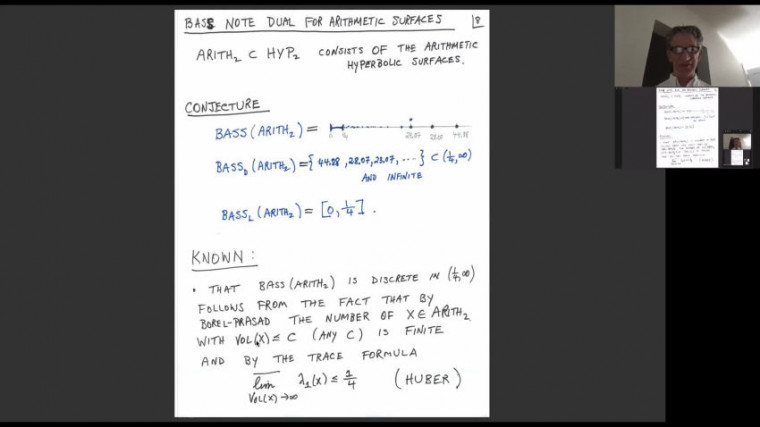 BASS NOTE DUAL FOR ARITHMETIC SURFACES 8
ARITH₂ ⊂ HYP₂ CONSISTS OF THE ARITHMETIC
HYPERBOLIC SURFACES.
CONJECTURE
BASS(ARITH₂) =
0 1/4 23.07 28.07 44.88
BASS_D(ARITH₂) = {44.88, 28.07, 23.07, ...} ⊂ (1/4, ∞)
AND INFINITE
BASS_L(ARITH₂) = [0, 1/4].
KNOWN:
• THAT BASS(ARITH₂) IS DISCRETE IN (1/4, ∞)
FOLLOWS FROM THE FACT THAT BY
BOREL-PRASAD THE NUMBER OF X ∈ ARITH₂
WITH VOL(X) ≤ C (ANY C) IS FINITE
AND BY THE TRACE FORMULA
lim λ₁(X) ≤ 1/4 (HUBER)
VOL(X)→∞